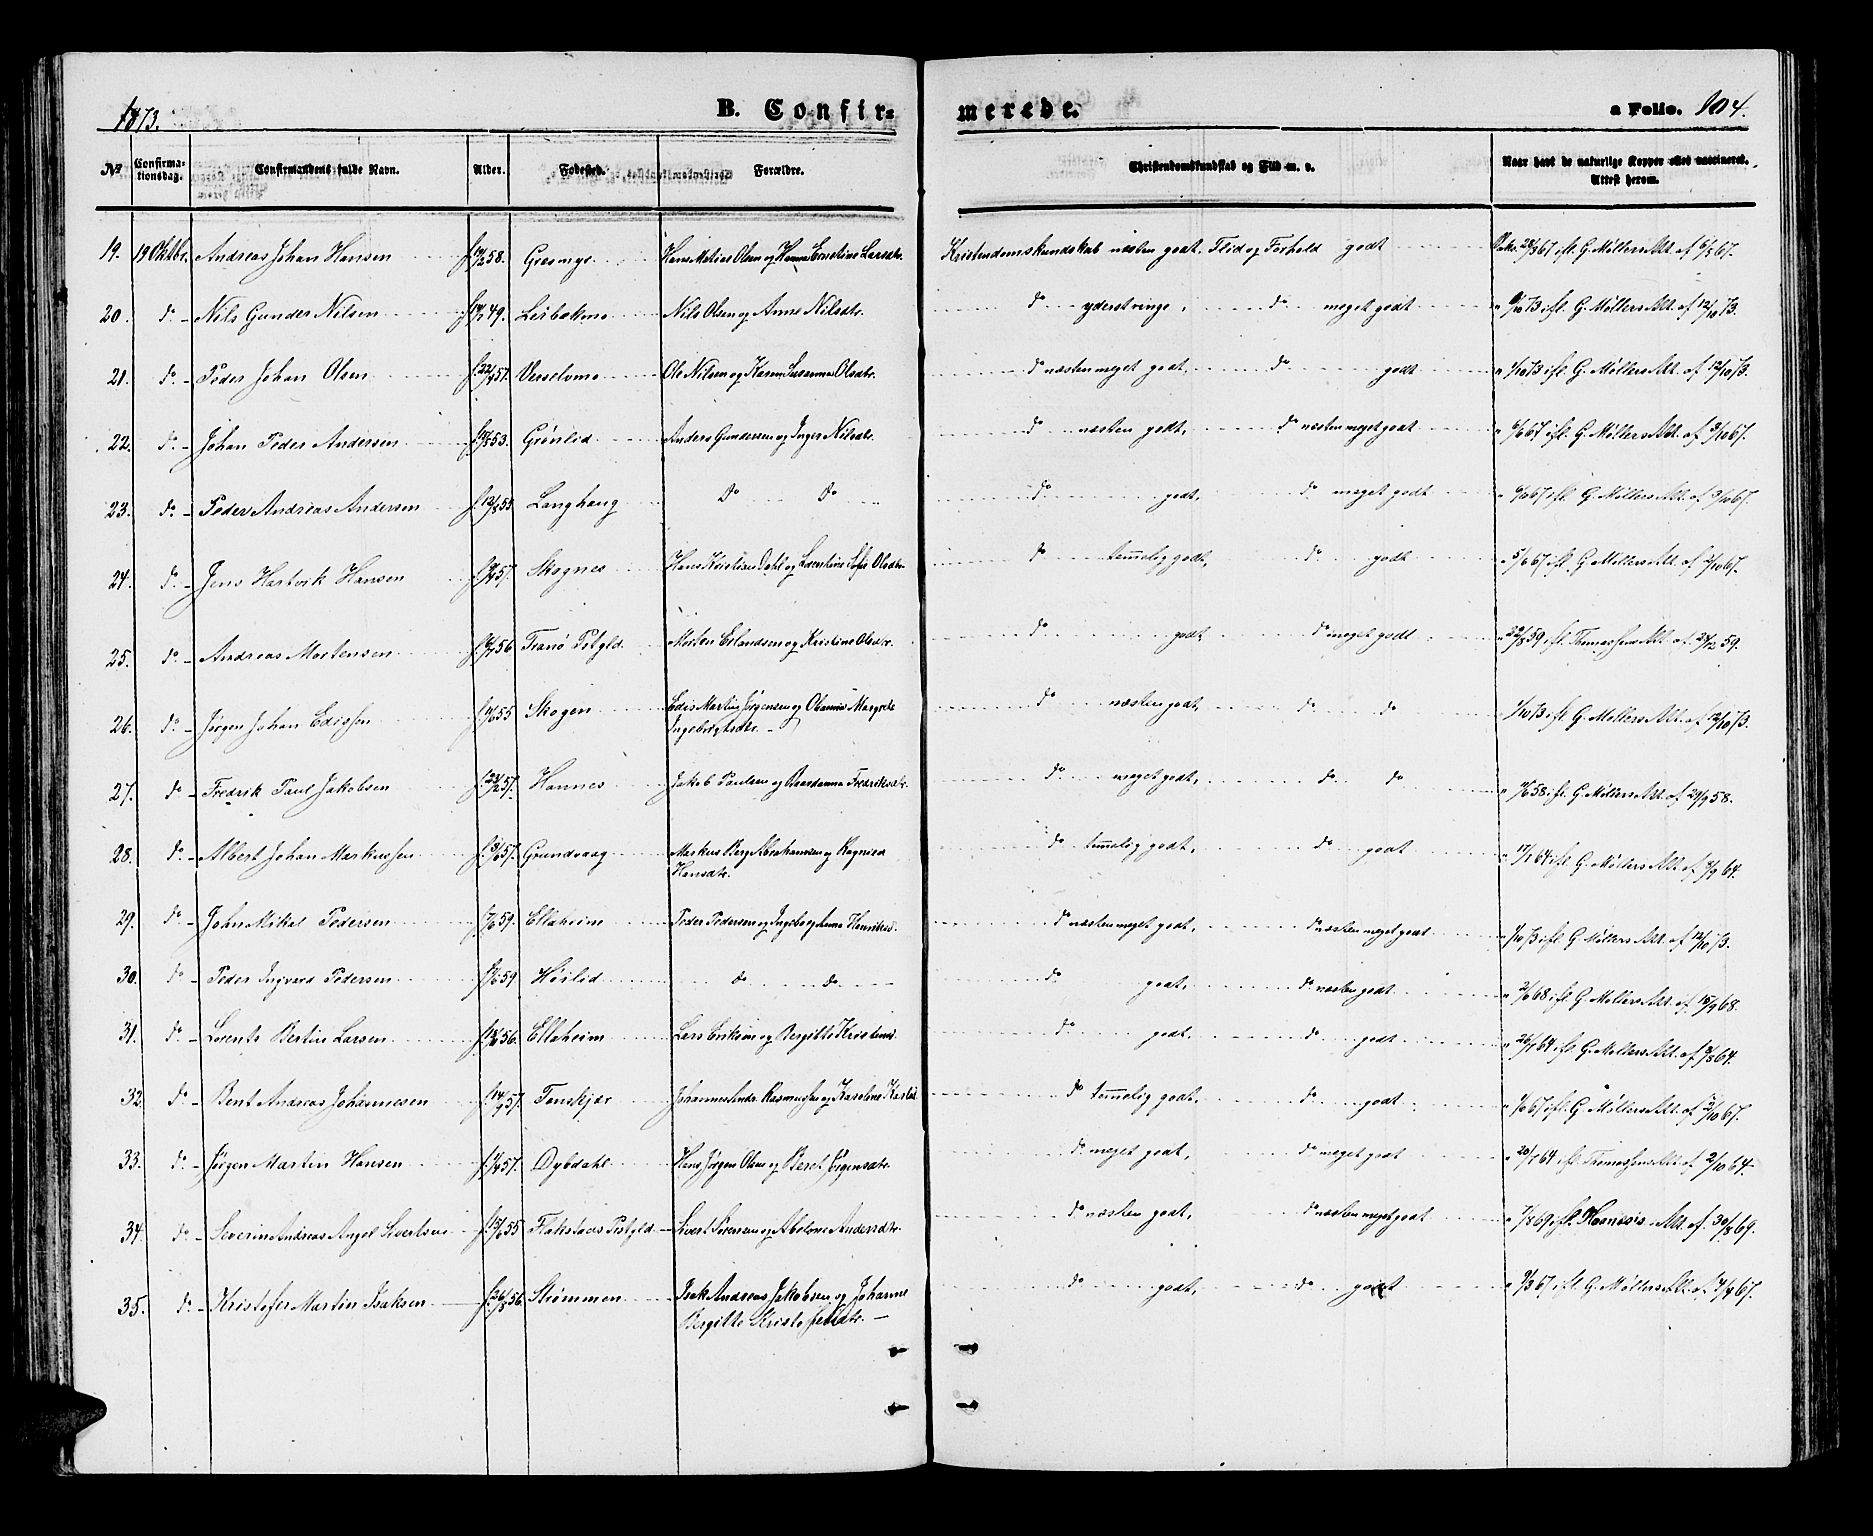 1873. B. Confir- merede. a Folio. 104.
No Confirma- tionsdag. Confirmandens fulde Navn. Alder. Fødested. Forældre. Christendomskundskab og Flid m. v. Naar havt de naturlige Kopper eller vaccineret.
Attest herom.
19. 19 Oktbr. Andreas Johan Hansen f. 58. Gresmyr Hans Matias Olsen og Hanna Ernstine Larsdtr. Kristendomskundskab næsten godt, Flid og Forhold godt Vakc. 28/8 67 ifl. G. Møllers Att. af 6/8 67.
20. do - Nils Gunder Nilsen f. 49. Leibakmo Nils Olsen og Anne Nilsdtr. do yderst ringe, do meget godt " 9/10 73 ifl. G. Møllers Att. af 12/10 73.
21. do - Peder Johan Olsen f. 22/4 57. Verselvmo Ole Nilsen og Karen Susanna Olsdtr. do næsten meget godt, do godt " 1/10 73 ifl. G. Møllers Att. af 12/10 73.
22. do - Johan Peder Andersen f. 53. Grønlid Anders Gundersen og Inger Nilsdtr. do næsten godt, do næsten meget godt " 6/6 67 ifl. G. Møllers Att. af 3/10 67.
23. do - Peder Andreas Andersen f. 12/8 55 Langhaug do do do godt, do meget godt " 6/6 67 ifl. G. Møllers Att. af 3/10 67.
24. do - Jens Hartvik Hansen f. 57. Skognes Hans Kristian Dahl og Sofie Olsdtr. do temmelig godt, do godt " 5/6 67 ifl. G. Møllers Att. af 3/10 67.
25. do - Andreas Mortensen f. 56 Tranø Pstgld. Morten Erlandsen og Kristine Olsdtr. do godt do meget godt " 22/8 59 ifl. Thomassens Att. af 27/12 59.
26. do - Jørgen Johan Edissen f. 55 Skogen Edis Martin Jørgensen og Olamine Margrete
Ingebrigtsdtr. - do næsten godt, do do 1/10 73 ifl. G. Møllers Att. af 12/10 73.
27. do - Fredrik Paul Jakobsen f. 23/2 57. Hannes Jakob Paulsen og Baardanna Fredriksdtr. do meget godt, do do " 58 ifl. G. Møllers Att. af 29/9 58.
28. do - Albert Johan Markussen f. 57. Grundvaag Markus Berg Abrahamsen og Ragnild
Hansdtr. do temmelig godt, do godt " 17/7 64 ifl. G. Møllers Att. af 8/9 64.
29. do - John Mikal Pedersen f. 7/6 59. Ellaheim Peder Pedersen og Ingeborg Anna do næsten meget godt, do næsten meget godt " 1/10 73 ifl. G. Møllers Att. af 12/10 73.
30. do - Peder Ingvard Pedersen f. 59 Høilid do do do godt, do næsten godt " 2/6 68 ifl. G. Møllers Att. af 18/9 68.
31. do - Lorents Bertin Larsen f. 56. Ellaheim Lars Eriksen og Bergitte do godt, do godt " 26/7 64 ifl. G. Møllers Att. af 64.
32. do - Bent Andreas Johannesen f. 14/9 57. Tenskjær Johannes Andr. Rasmussen og Karoline do temmelig godt, do godt " 67 ifl. G. Møllers Att. af 67.
33. do - Jørgen Martin Hansen f. 57. Dybdahl Hans Jørgen Olsen og Beret Jørgensdtr. do meget godt, do meget godt " 20/7 64 ifl. Thomassens Att. af 2/10 64.
34. do - Severin Andreas Angel Sivertsen f. 15/6 55 Flakstads Pstgld. - Sivert Sørensen og Abelone Andersdtr. do næsten godt, do næsten meget godt " 7/8 69 ifl. Att. af 30/8 69.
35. do - Kristofer Martin Isaksen f. 24/8 56. Strømmen Isak Andreas Jakobsen og Johanne
Bergitte Kristofersdtr. - do godt, do godt " 67 ifl. G. Møllers Att. af 67.